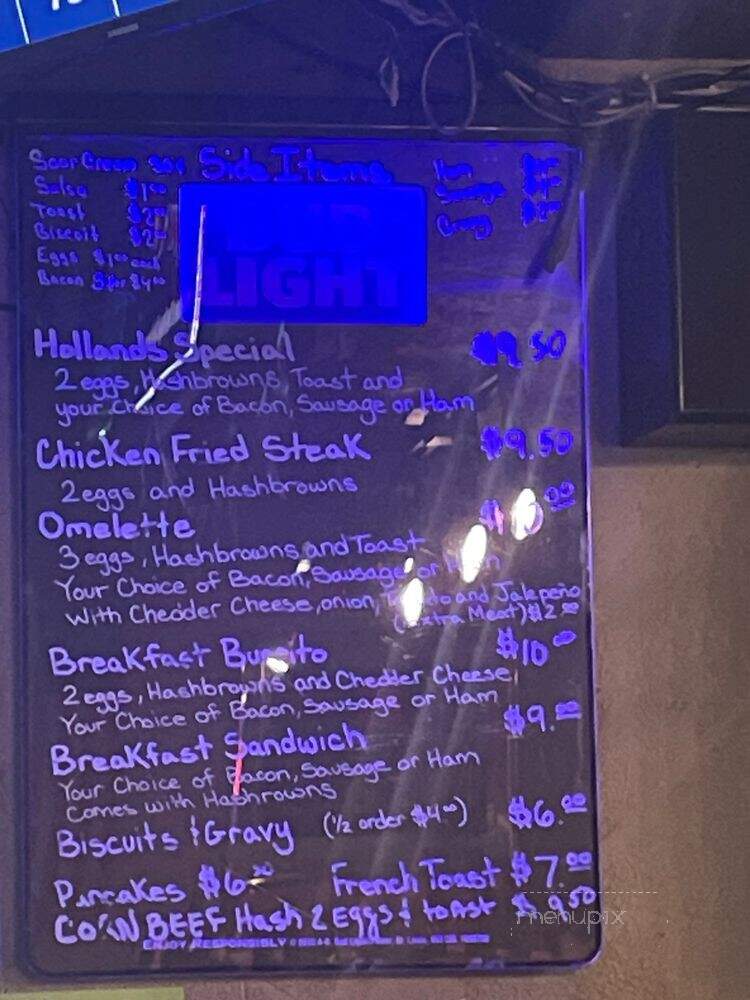 Side Items
Sour Cream 50¢
Salsa $1.00
Toast $2.00
Biscuit $2
Eggs $1.00 each
Bacon for $4.00
Ham
Sausage
Gravy
LIGHT
Hollands Special $9.50
2 eggs, Hashbrowns, Toast and
your Choice of Bacon, Sausage or Ham
Chicken Fried Steak $9.50
2 eggs and Hashbrowns
Omelette $10.00
3 eggs, Hashbrowns and Toast
Your Choice of Bacon, Sausage or Ham
With Chedder Cheese, onion, and Jalepeño
(Extra Meat) $2.00
Breakfast Burrito $10.00
2 eggs, Hashbrowns and Chedder Cheese,
Your Choice of Bacon, Sausage or Ham
Breakfast Sandwich $9.00
Your Choice of Bacon, Sausage or Ham
Comes with Hashrowns
Biscuits & Gravy (1/2 order $4.00) $6.00
Pancakes $6 French Toast $7.00
CORN BEEF Hash 2 Eggs & toast $9.50
ENJOY RESPONSIBLY
menupix